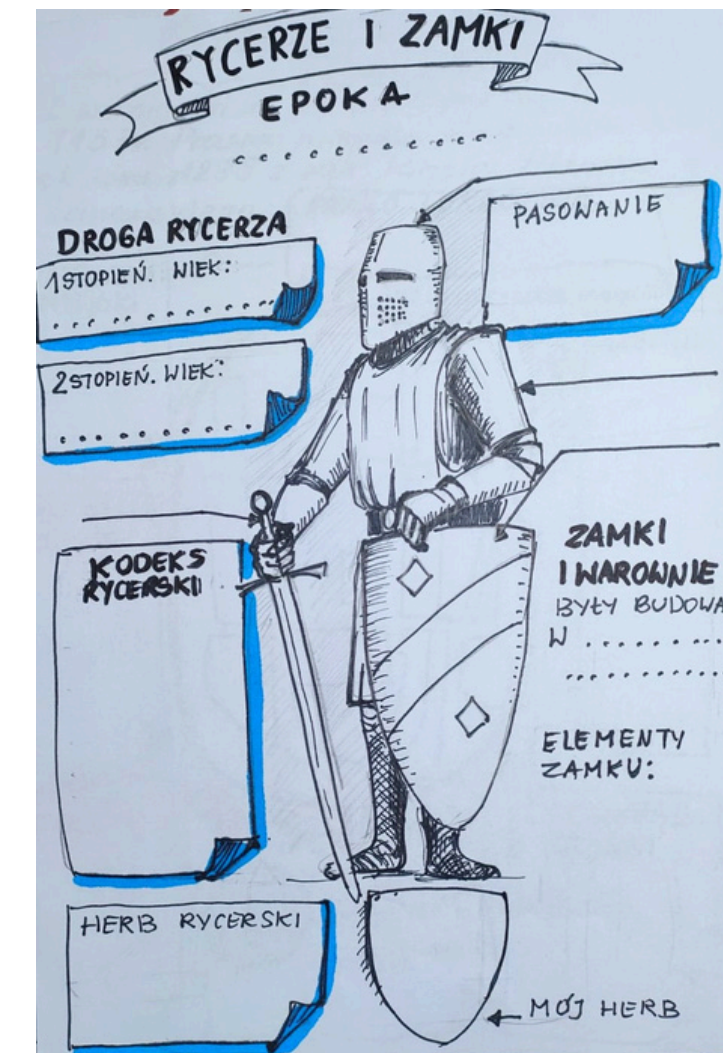 RYCERZE I ZAMKI
EPOKA
..............
DROGA RYCERZA
1 STOPIEŃ. WIEK:
............
2 STOPIEŃ. WIEK:
..........
PASOWANIE
KODEKS
RYCERSKI
ZAMKI
I WAROWNIE
BYŁY BUDOWA
W ........
............
ELEMENTY
ZAMKU:
HERB RYCERSKI
MÓJ HERB